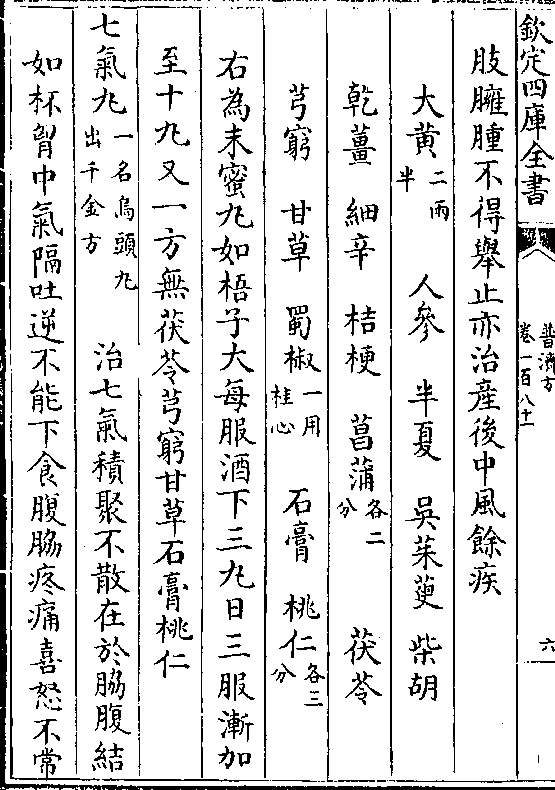 欽定四庫全書
普濟方
卷一百八十一
六
肢臃腫不得舉止亦治產後中風餘疾
大黄二兩半 人參 半夏 吳茱萸 柴胡
乾薑 細辛 桔梗 菖蒲各二分 茯苓
芎窮 甘草 蜀椒一用桂心 石膏 桃仁各三分
右為末蜜丸如梧子大每服酒下三丸日三服漸加
至十丸又一方無茯苓芎窮甘草石膏桃仁
七氣丸一名烏頭丸出千金方 治七氣積聚不散在於脇腹結
如杯胷中氣隔吐逆不能下食腹脇疼痛喜怒不常